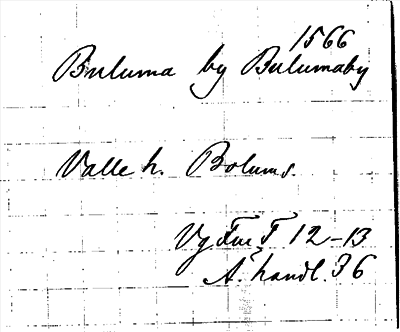 1566
Buluma by Bulumaby
Valle h. Bolums.
Vg Fur F 12-13
Ä. handl. 36